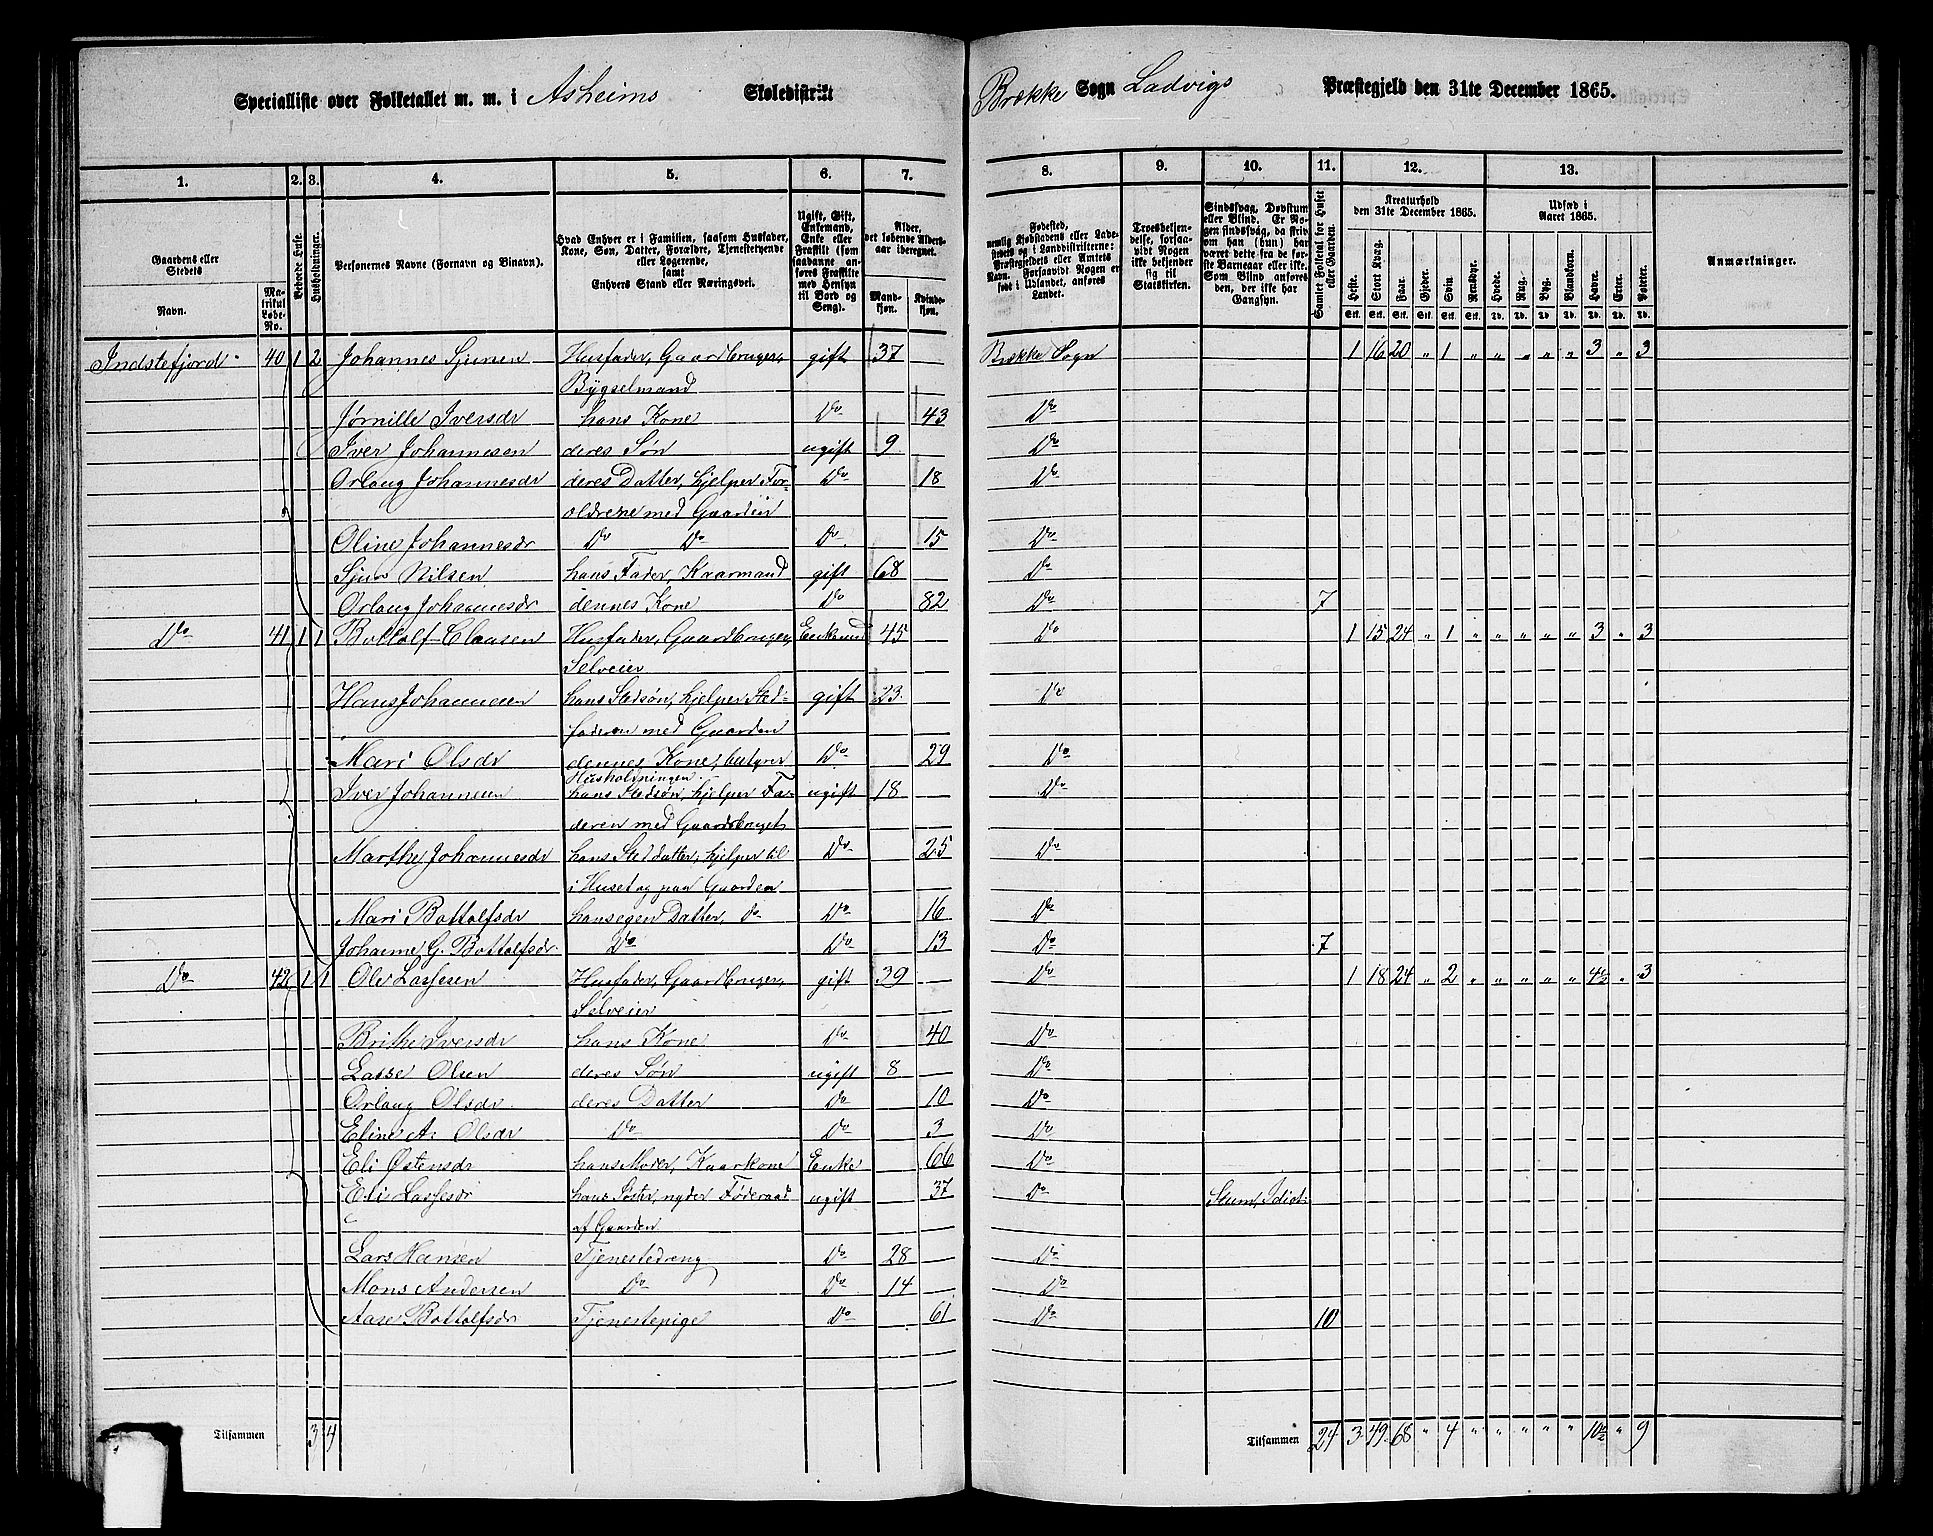 Specialliste over Folketallet m. m. i Asheims Skoledistrikt Brekke Sogn Ladvigs Præstegjeld den 31te December 1865.
1. 2. 3. 4. 5. 6. 7. 8. 9. 10. 11. 12. 13.
Gaardens eller Stedets
Navn.
Matrikul Løbe-No.
Beboede Huse.
Husholdninger.
Personernes Navne (Fornavn og Binavn).
Hvad Enhver er i Familien, saasom Husfader, Kone, Søn, Datter, Forældre, Tjenestetyende eller Logerende, samt Enhvers Stand eller Næringsvei.
Ugift, Gift, Enkemand, Enke eller Fraskilt (som saadanne anføres Fraskilte med Hensyn til Bord og Seng).
Alder, det løbende Alders-aar iberegnet.
Mandkjøn.
Kvindekjøn.
Fødested,
Troesbekjendelse, forsaavidt Nogen ikke bekjender sig til Statskirken.
Sindssvag, Døvstum eller Blind.
Samlet Folketal for Huset eller Gaarden.
Kreaturhold den 31te December 1865.
Heste. Stort Kvæg. Faar. Gjeder. Svin. Rensdyr.
Udsæd i Aaret 1865.
Hvede. Rug. Byg. Blandkorn. Havre. Erter. Poteter.
Anmærkninger.
Indstefjord 40 1 2 Johannes Sjursen Husfader, Gaardbruger, gift 37 Brekke Sogn 1 16 20 „ 1 „ „ „ „ „ 3 „ 3
Bygselmand
Jørnille Iversdr hans Kone Do 43 Do
Iver Johannesen deres Søn ugift 9 Do
Orlaug Johannesdr deres Datter, hjelper For- Do 18 Do
ældrene med Gaarden
Oline Johannesdr Do Do Do 15 Do
Sjur Nilsen hans Fader, Kaarmand gift 68 Do
Orlaug Johannesdr dennes Kone Do 82 Do 7
Do 41 1 1 Bottolf Claasen Husfader, Gaardbruger, Enkemd 45 Do 1 15 24 „ 1 „ „ „ „ „ 3 „ 3
Selveier
Hans Johannesen hans Stedsøn, hjelper Sted- gift 23 Do
faderen med Gaarden
Mari Olsdr dennes Kone, bestyrer Do 29 Do
Husholdningen.
Iver Johannesen hans Stedsøn, hjelper Fa- ugift 18 Do
deren med Gaardsbruget
Marthe Johannesdr hans Steddatter, hjelper til Do 25 Do
i Huset og paa Gaarden
Mari Bottolfsdr hans egen Datter, do Do 16 Do
Johanne G. Bottolfsdr Do Do 13 Do 7
Do 42 1 1 Ole Lassesen Husfader, Gaardbruger, gift 39 Do 1 18 24 „ 2 „ „ „ „ „ 4½ „ 3
Selveier
Brithe Iversdr hans Kone Do 40 Do
Lasse Olsen deres Søn ugift 8 Do
Orlaug Olsdr deres Datter Do 10 Do
Eline A. Olsdr Do Do 3 Do
Eli Østensdr hans Moder, Kaarkone Enke 66 Do
Eli Lassesdr hans Søster, nyder Føderaad ugift 37 Do Stum, Idiot
af Gaarden
Lars Hansen Tjenestedreng Do 28 Do
Mons Andersen Do Do 14 Do
Aase Bottolfsdr Tjenestepige Do 61 Do 10
Tilsammen 3 4 Tilsammen 24 3 49 68 „ 4 „ „ „ „ „ 10½ „ 9